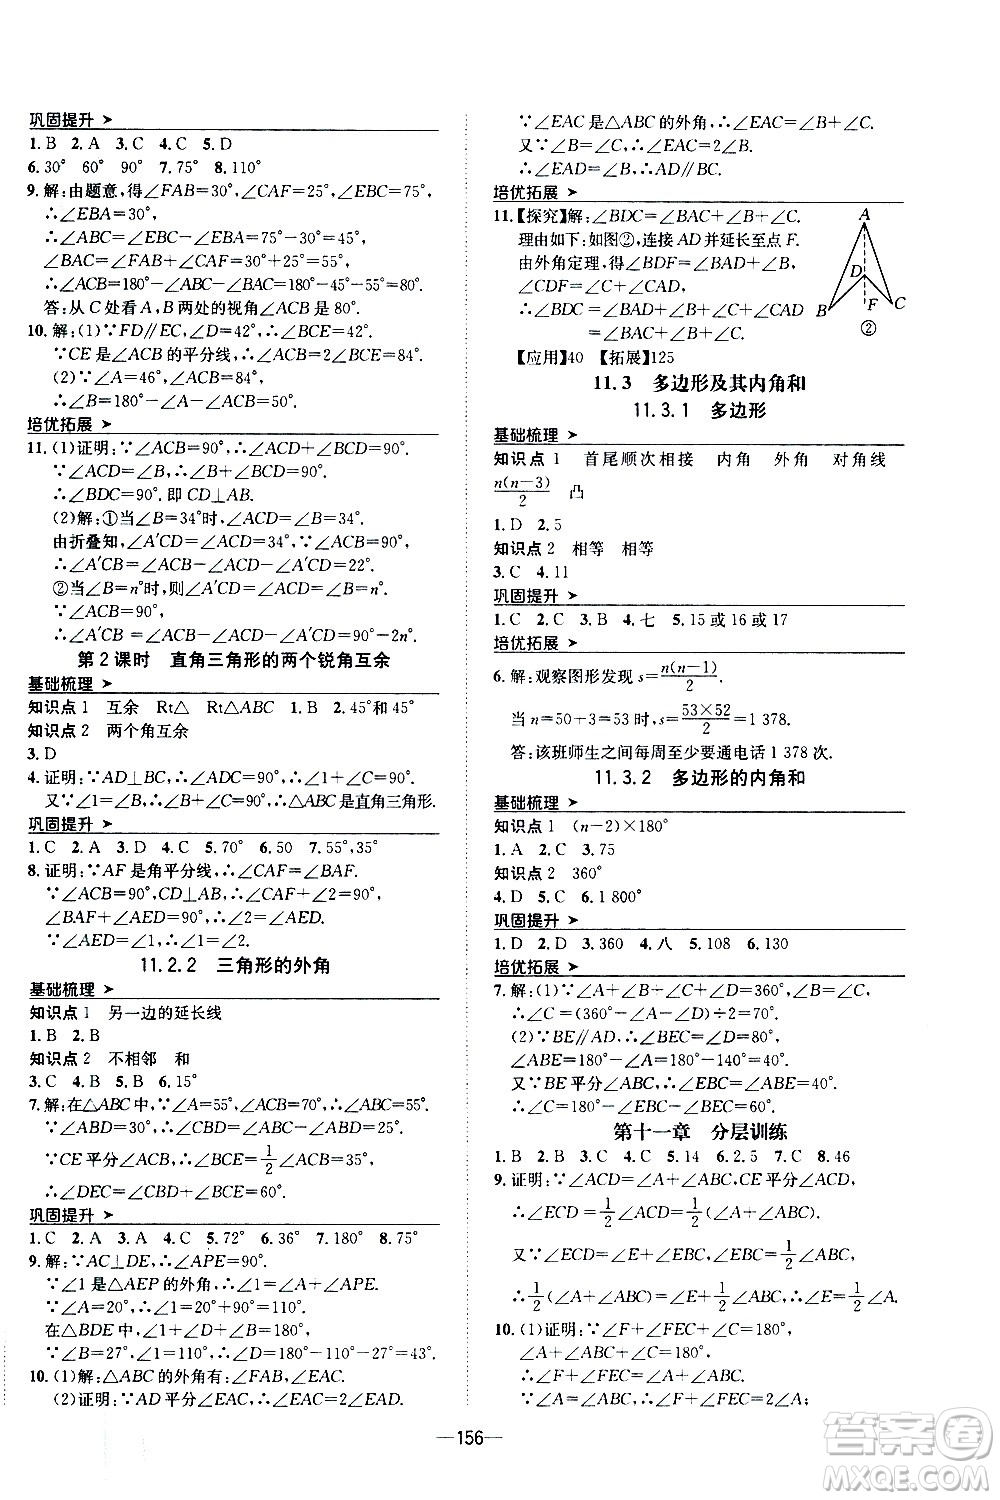 巩固提升 ➤
1. B 2. A 3. C 4. C 5. D
6. 30° 60° 90° 7. 75° 8. 110°
9. 解:由题意,得∠FAB=30°,∠CAF=25°,∠EBC=75°,
∴∠EBA=30°.
∴∠ABC=∠EBC-∠EBA=75°-30°=45°,
∠BAC=∠FAB+∠CAF=30°+25°=55°.
∴∠ACB=180°-∠ABC-∠BAC=180°-45°-55°=80°.
答:从 C 处看 A,B 两处的视角∠ACB 是 80°.
10. 解:(1)∵FD∥EC,∠D=42°,∴∠BCE=42°.
∵CE 是∠ACB 的平分线,∴∠ACB=2∠BCE=84°.
(2)∵∠A=46°,∠ACB=84°,
∴∠B=180°-∠A-∠ACB=50°.
培优拓展 ➤
11. (1)证明:∵∠ACB=90°,∴∠ACD+∠BCD=90°.
∵∠ACD=∠B,∴∠B+∠BCD=90°.
∴∠BDC=90°. 即 CD⊥AB.
(2)解:①当∠B=34°时,∠ACD=∠B=34°.
由折叠知,∠A'CD=∠ACD=34°,∵∠BCA=90°,
∴∠A'CB=∠ACB-∠A'CD-∠ACD=22°.
②当∠B=n°时,则∠A'CD=∠ACD=∠B=n°.
∵∠ACB=90°,
∴∠A'CB=∠ACB-∠A'CD-∠ACD=90°-2n°.
第 2 课时 直角三角形的两个锐角互余
基础梳理 ➤
知识点 1 互余 Rt△ Rt△ABC 1. B 2. 45°和 45°
知识点 2 两个角互余
3. D
4. 证明:∵AD⊥BC,∴∠ADC=90°,∴∠2+∠C=90°.
又∵∠1=∠B,∴∠2+∠1=90°,∴△ABC 是直角三角形.
巩固提升 ➤
1. C 2. A 3. D 4. C 5. 70° 6. 50 7. 55°,35°
8. 证明:∵AF 是角平分线,∴∠CAF=∠BAF.
∵∠ACB=90°,CD⊥AB,∴∠CAF+∠2=90°,
∠BAF+∠AED=90°,∴∠2=∠AED.
∵∠AED=∠1,∴∠1=∠2.
11.2.2 三角形的外角
基础梳理 ➤
知识点 1 另一边的延长线
1. B 2. B
知识点 2 不相邻 和
3. C 4. B 5. B 6. 15°
7. 解:在△ABC 中,∵∠A=55°,∠ACB=70°,∴∠ABC=55°.
∵∠ABD=30°,∴∠CBD=∠ABC-∠ABD=25°.
∵CE 平分∠ACB,∴∠BCE=1/2∠ACB=35°.
∴∠DEC=∠CBD+∠BCE=60°.
巩固提升 ➤
1. C 2. A 3. A 4. C 5. 72° 6. 36° 7. 180° 8. 75°
9. 解:∵AC⊥DE,∴∠APE=90°.
∵∠1 是△AEP 的外角,∴∠1=∠A+∠APE.
∵∠A=20°,∴∠1=20°+90°=110°.
在△BDE 中,∠1+∠D+∠B=180°.
∵∠B=27°,∴∠D=180°-110°-27°=43°.
10. (1)解:△ABC 的外角有:∠FAB,∠EAC.
(2)证明:∵AD 平分∠EAC,∴∠EAC=2∠EAD.
∵∠EAC 是△ABC 的外角,∴∠EAC=∠B+∠C.
又∵∠B=∠C,∴∠EAC=2∠B.
∴∠EAD=∠B,∴AD∥BC.
培优拓展 ➤
11.【探究】解:∠BDC=∠BAC+∠B+∠C.
理由如下:如图②,连接 AD 并延长至点 F.
由外角定理,得∠BDF=∠BAD+∠B,
∠CDF=∠C+∠CAD.
∴∠BDC=∠B+∠C+∠BAD+∠CAD
=∠BAC+∠B+∠C.
【应用】40 【拓展】125
A
D
B
F
C
②
11.3 多边形及其内角和
11.3.1 多边形
基础梳理 ➤
知识点 1 首尾顺次相接 内角 外角 对角线
n(n-3)/2 凸
1. D 2. 5
知识点 2 相等 相等
3. C 4. 11
巩固提升 ➤
1. C 2. C 3. B 4. 七 5. 15 或 16 或 17
培优拓展 ➤
6. 解:观察图形发现 s=n(n-1)/2.
当 n=50+3=53 时,s=53×52/2=1 378.
答:该班师生之间每周至少要通电话 1 378 次.
11.3.2 多边形的内角和
基础梳理 ➤
知识点 1 (n-2)×180°
1. A 2. C 3. 75
知识点 2 360°
4. D 5. C 6. 1 800°
巩固提升 ➤
1. D 2. D 3. 360 4. 八 5. 108 6. 130
培优拓展 ➤
7. 解:(1)∵∠A+∠B+∠C+∠D=360°,∠B=∠C,
∴∠C=(360°-∠A-∠D)÷2=75°.
(2)∵BE∥AD,∴∠BEC=∠D=80°,
∠ABE=180°-∠A=180°-140°=40°.
又∵BE 平分∠ABC,∴∠EBC=∠ABE=40°,
∴∠C=180°-∠EBC-∠BEC=60°.
第十一章 分层训练
1. B 2. B 3. C 4. C 5. 14 6. 2.5 7. C 8. 46
9. 证明:∵∠ACD=∠A+∠ABC,CE 平分∠ACD,
∴∠ECD=1/2∠ACD=1/2(∠A+∠ABC).
又∵∠ECD=∠E+∠EBC=∠E+1/2∠ABC,
∴1/2(∠A+∠ABC)=1/2∠ABC+∠E,∴∠E=1/2∠A.
10. (1)证明:∵∠F+∠FEC+∠C=180°,
∠A+∠ABC+∠C=180°,
∴∠F+∠FEC=∠A+∠ABC.
∵∠FEC=∠A,∠F+∠FEC=2∠A;
—156—
答案圈
MXQE.COM